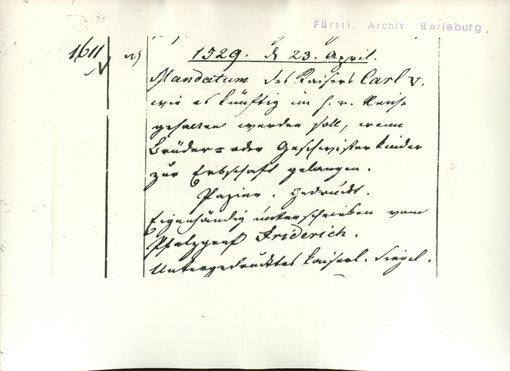 Fürstl. Archiv Berleburg.
1611
1529. d 23. April.
Mandatum des Kaisers Carl V.
wie es künftig im h. r. Reiche
gehalten werden soll, wenn
Brüder- oder Geschwisterkinder
zur Erbschaft gelangen.
Papier. Gedruckt.
Eigenhändig unterschrieben vom
Pfalzgraf Friderich.
Untergedrucktes Kaiserl. Siegel.